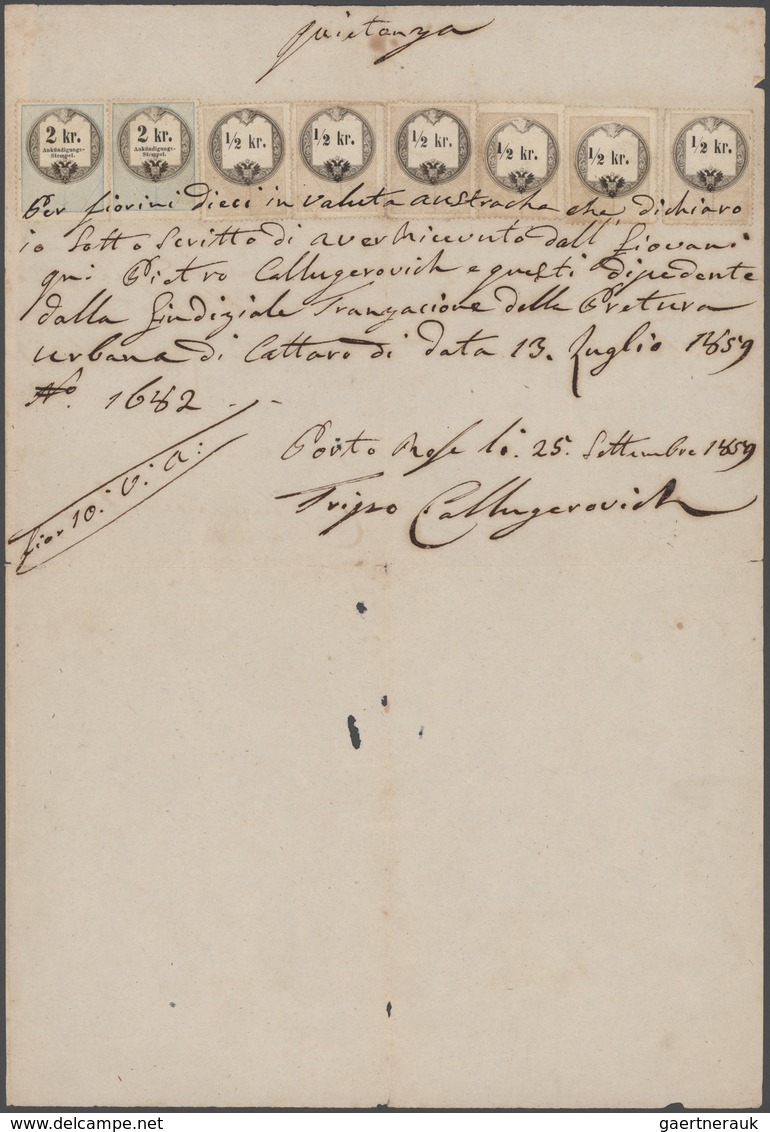 quietanza
2 kr.
Ankündigungs-
Stempel.
2 kr.
Ankündigungs-
Stempel.
1/2 kr.
1/2 kr.
1/2 kr.
1/2 kr.
1/2 kr.
1/2 kr.
Per fiorini dieci in valuta austracha che dichiaro
io sotto scritto di aver hicevuto dall Giovani
qui Pietro Callugerovich e questi dipedente
dalla Giudiziale Tranzacione della Pretura
urbana di Cattaro di data 13. Luglio 1859
No. 1682
Porto Rose li. 25. Settembre 1859
Tripo Callugerovich
fior 10: V: A:
gaertnerauk